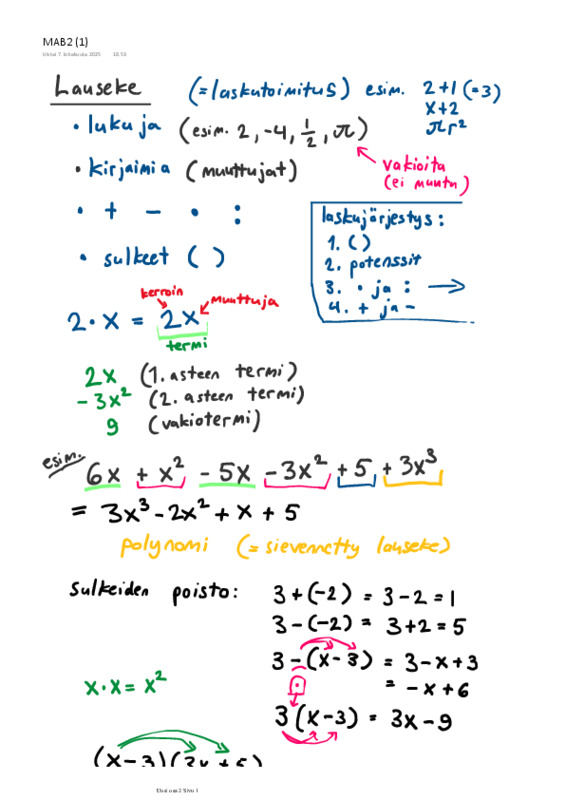 MAB2 (1)
Lauseke (=laskutoimitus) esim. 2+1 (=3)
x+2
πr²
• lukuja (esim. 2, -4, 1/2, π)
vakioita
(ei muutu)
• kirjaimia (muuttujat)
• + − • :
• sulkeet ( )
laskujärjestys:
1. ( )
2. potenssit
3. • ja : →
4. + ja -
kerroin
muuttuja
2 • x = 2x
termi
2x (1. asteen termi)
-3x² (2. asteen termi)
9 (vakiotermi)
esim.
6x + x² - 5x - 3x² + 5 + 3x³
= 3x³ - 2x² + x + 5
polynomi (= sievennetty lauseke)
Sulkeiden poisto: 3+(-2) = 3-2=1
3-(-2) = 3+2=5
3-(x-3) = 3-x+3
= -x+6
x•x = x²
3(x-3) = 3x-9